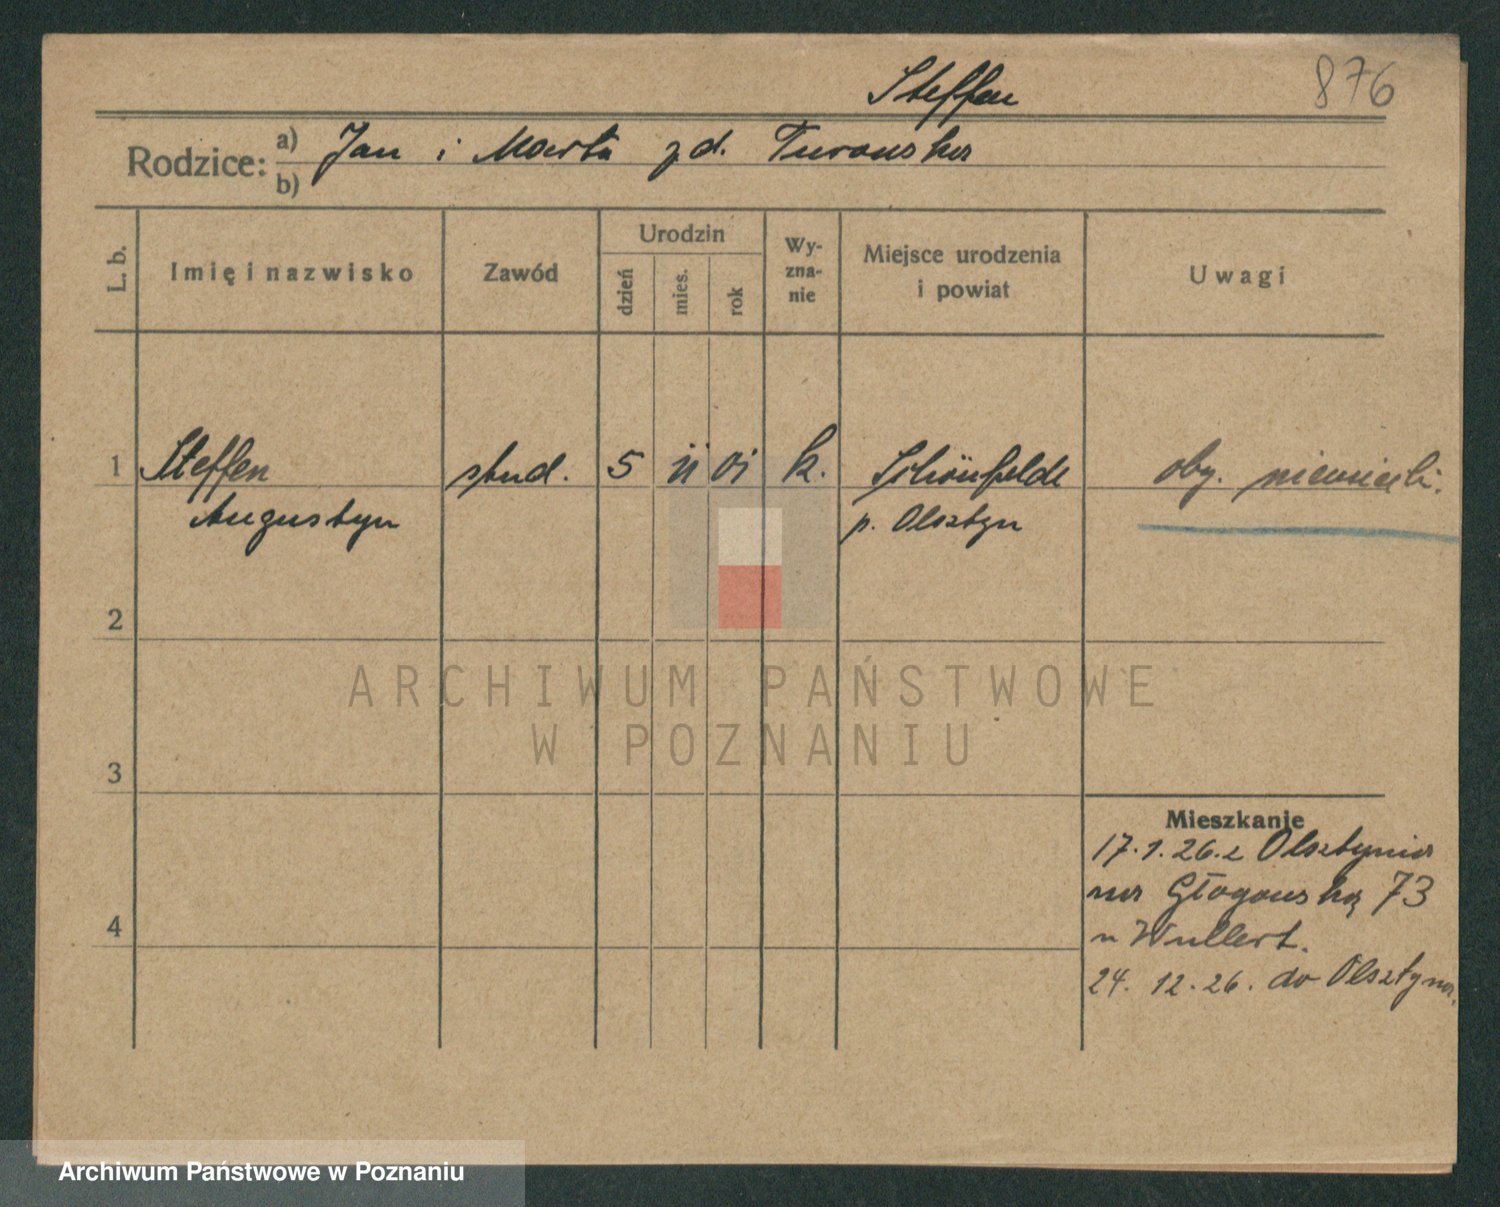 Steffen
876
Rodzice: a) Jan i Marta z d. Turowska
b)
L. b.
Imię i nazwisko
Zawód
Urodzin
dzień
mies.
rok
Wy-
zna-
nie
Miejsce urodzenia
i powiat
Uwagi
1 Steffen stud. 5 ii 01 k. Schönfelde oby. niemiecki.
Augustyn p. Olsztyn
2
3
4
ARCHIWUM PAŃSTWOWE
W POZNANIU
Mieszkanie
17.1.26. z Olsztynia
na Głogowską 73
u Wullert.
24. 12. 26. do Olsztyna.
Archiwum Państwowe w Poznaniu